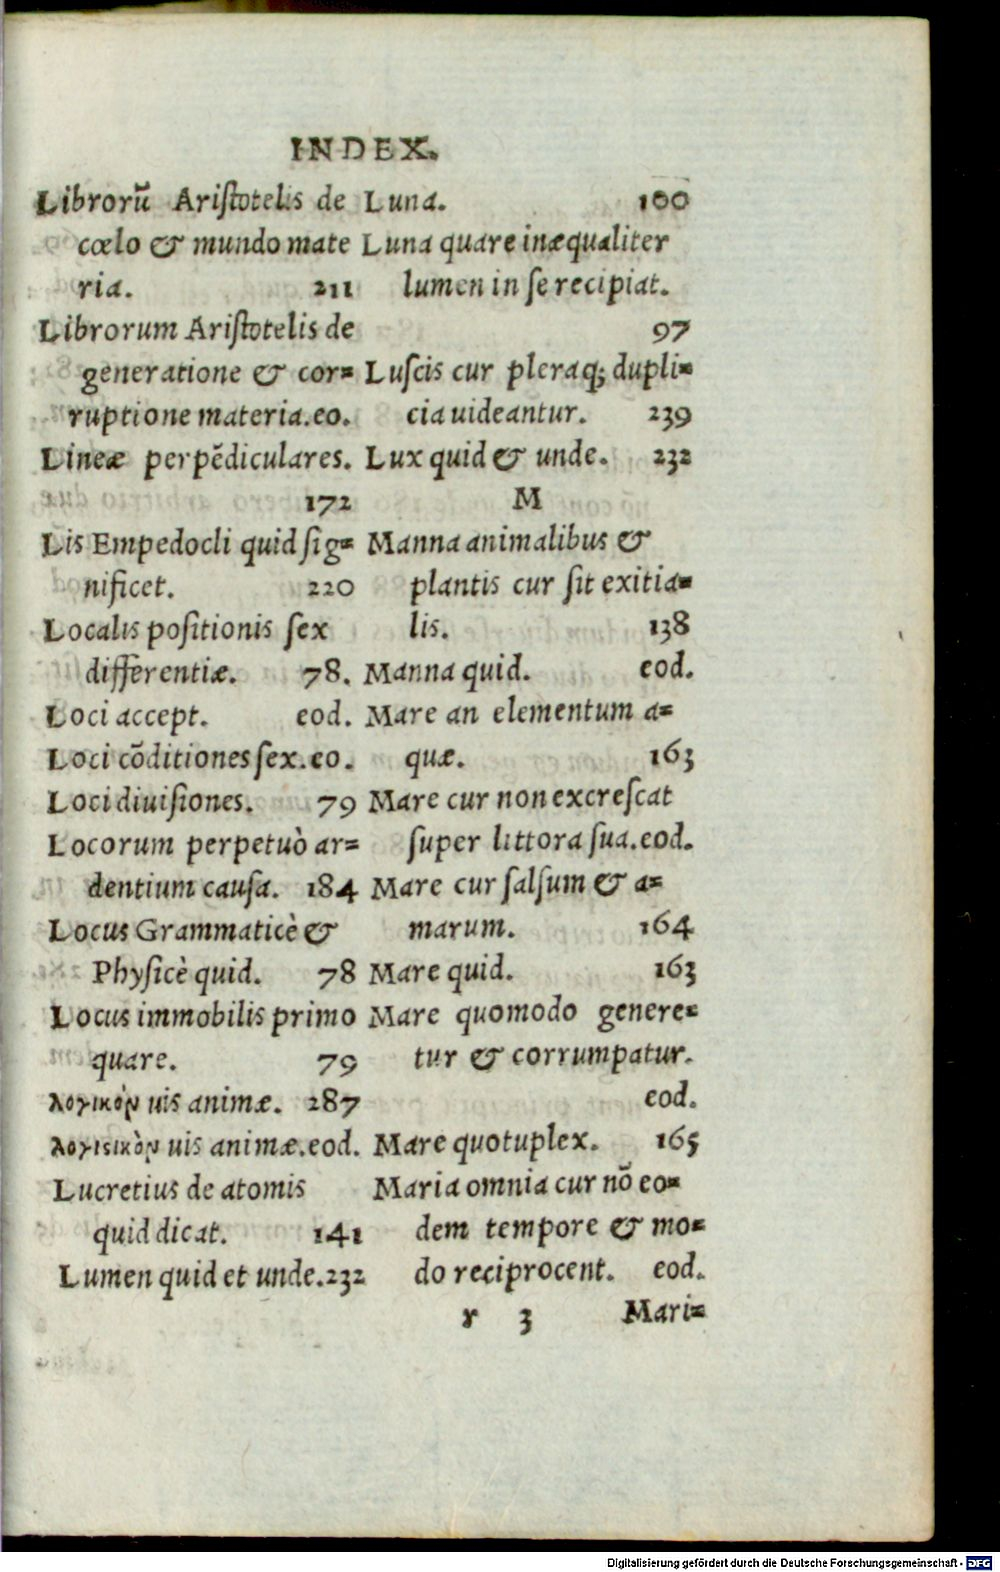 INDEX.
Librorū Aristotelis de
cœlo & mundo mate
ria. 211
Librorum Aristotelis de
generatione & cor=
ruptione materia.eo.
Lineæ perpēdiculares.
172
Lis Empedocli quid sig=
nificet. 220
Localis positionis sex
differentiæ. 78.
Loci accept. eod.
Loci cōditiones sex.eo.
Loci diuisiones. 79
Locorum perpetuò ar=
dentium causa. 184
Locus Grammaticè &
Physicè quid. 78
Locus immobilis primo
quare. 79
λογικὸν uis animæ. 287
λογισικὸν uis animæ.eod.
Lucretius de atomis
quid dicat. 141
Lumen quid et unde.232
Luna. 100
Luna quare inæqualiter
lumen in se recipiat.
97
Luscis cur pleraq; dupli=
cia uideantur. 239
Lux quid & unde. 232
M
Manna animalibus &
plantis cur sit exitia=
lis. 138
Manna quid. eod.
Mare an elementum a=
quæ. 163
Mare cur non excrescat
super littora sua.eod.
Mare cur salsum & a=
marum. 164
Mare quid. 163
Mare quomodo genere=
tur & corrumpatur.
eod.
Mare quotuplex. 165
Maria omnia cur nō eo=
dem tempore & mo=
do reciprocent. eod.
r 3 Mari=
Digitalisierung gefördert durch die Deutsche Forschungsgemeinschaft - DFG